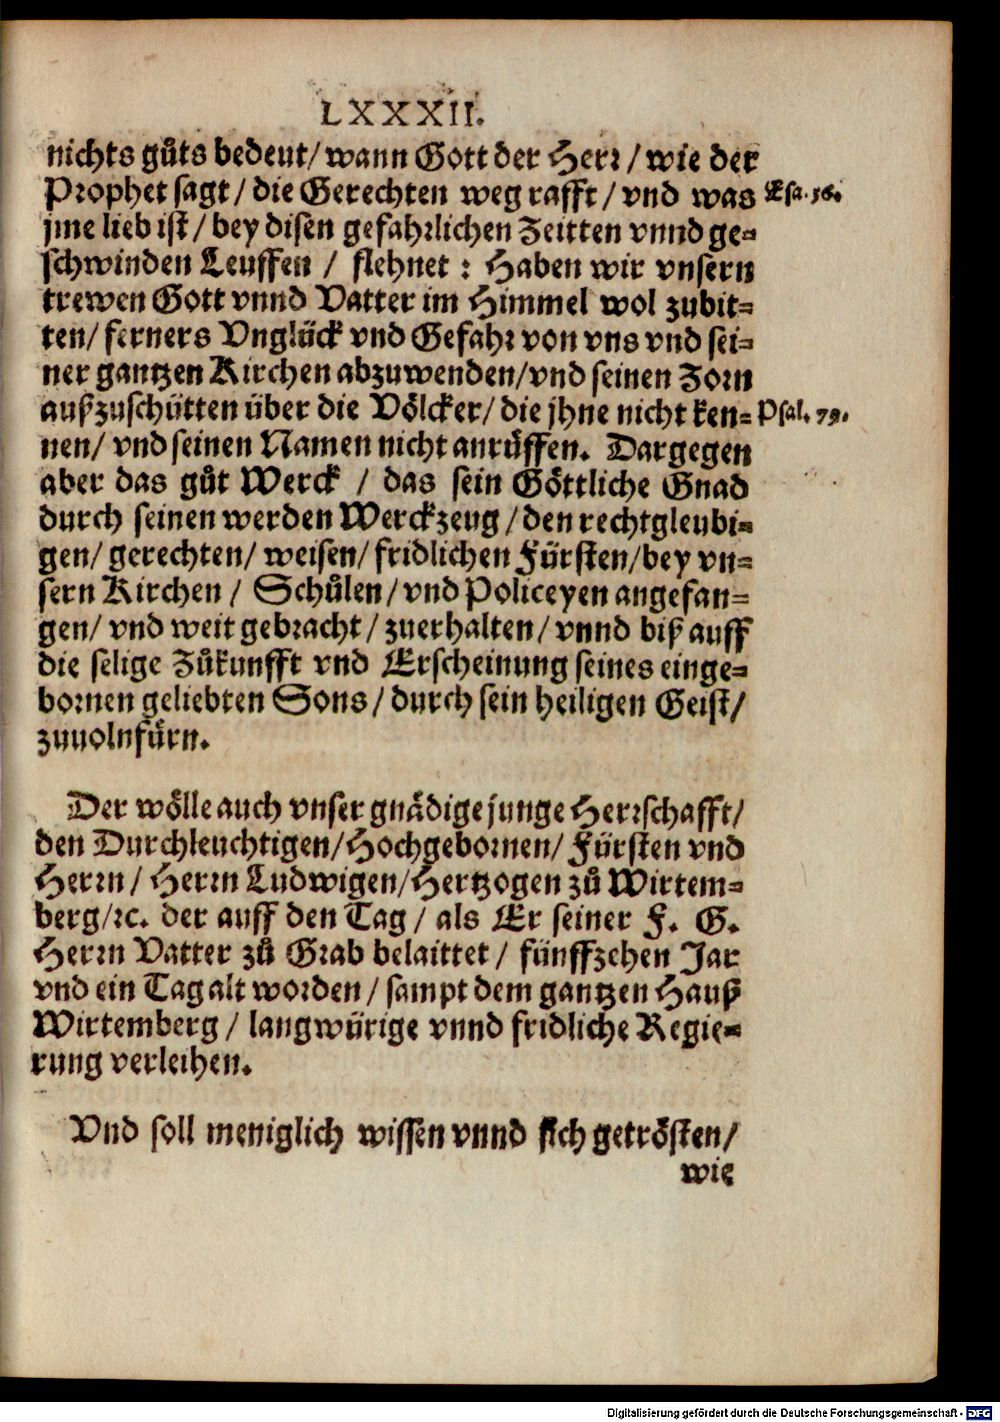 LXXXII.
nichts gůts bedeut/ wann Gott der Herꝛ/ wie der
Prophet sagt/ die Gerechten weg rafft/ vnd was Esa. 56.
jme lieb ist/ bey disen gefahꝛlichen Zeitten vnnd ge-
schwinden Leuffen / flehnet: Haben wir vnsern
trewen Gott vnnd Vatter im Himmel wol zubit-
ten/ ferners Vnglück vnd Gefahꝛ von vns vnd sei-
ner gantzen Kirchen abzuwenden/ vnd seinen Zoꝛn
außzuschütten über die Völcker/ die jhne nicht ken- Psal. 79.
nen/ vnd seinen Namen nicht anrůffen. Dargegen
aber das gůt Werck / das sein Göttliche Gnad
durch seinen werden Werckzeug/ den rechtgleubi-
gen/ gerechten/ weisen/ fridlichen Fürsten/ bey vn-
sern Kirchen / Schůlen/ vnd Policeyen angefan-
gen/ vnd weit gebꝛacht/ zuerhalten/ vnnd biß auff
die selige Zůkunfft vnd Erscheinung seines einge-
boꝛnen geliebten Sons/ durch sein heiligen Geist/
zuuolnfürn.
Der wölle auch vnser gnädige junge Herꝛschafft/
den Durchleuchtigen/ Hochgeboꝛnen/ Fürsten vnd
Herꝛn/ Herꝛn Ludwigen/ Hertzogen zů Wirtem-
berg/ ꝛc. der auff den Tag/ als Er seiner F. G.
Herꝛn Vatter zů Gꝛab belaittet/ fünffzehen Jar
vnd ein Tag alt woꝛden/ sampt dem gantzen Hauß
Wirtemberg/ langwürige vnnd fridliche Regie-
rung verleihen.
Vnd soll meniglich wissen vnnd sich getrösten/
wie
Digitalisierung gefördert durch die Deutsche Forschungsgemeinschaft - DFG